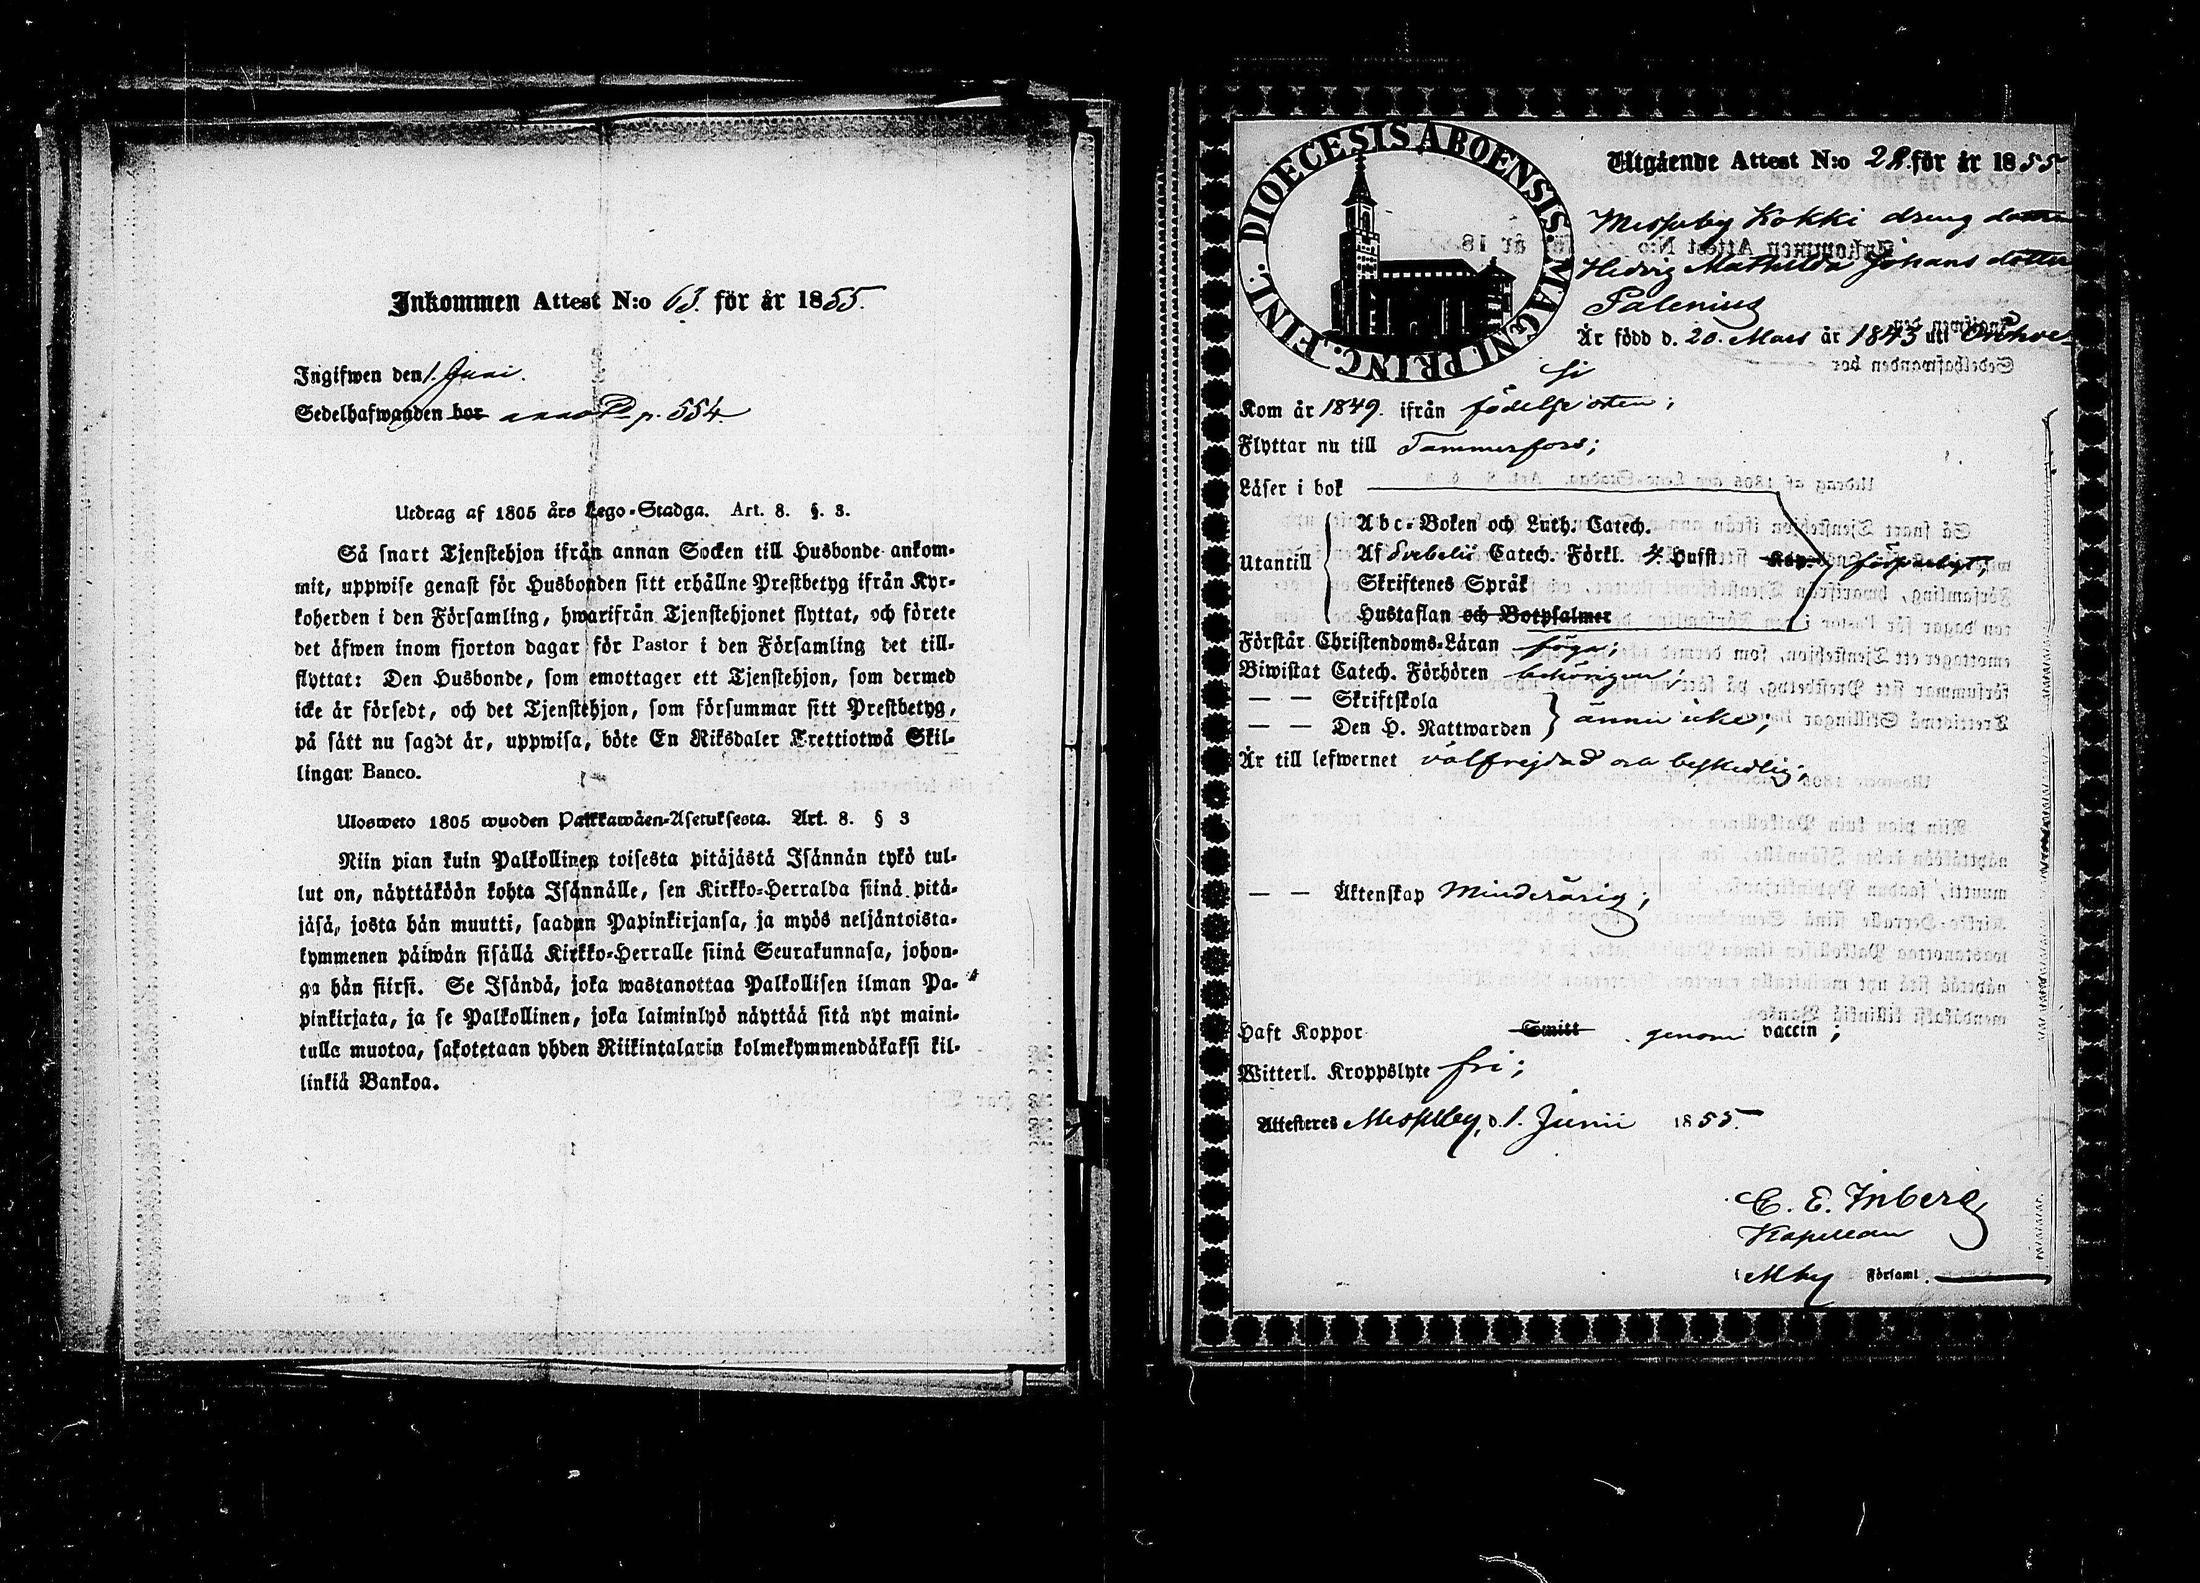 Inkommen Attest N:o 63. för år 1855.
Ingifwen den 1. Juni.
Sedelhafwanden bor p. 554.
Utdrag af 1805 års Lego-Stadga. Art. 8. §. 3.
Så snart Tjenstehjon ifrån annan Socken till Husbonde ankom-
mit, uppwise genast för Husbonden sitt erhållne Prestbetyg ifrån Kyr-
koherden i den Församling, hwarifrån Tjenstehjonet flyttat, och förete
det äfwen inom fjorton dagar för Pastor i den Församling det till-
flyttat: Den Husbonde, som emottager ett Tjenstehjon, som dermed
icke är försedt, och det Tjenstehjon, som försummar sitt Prestbetyg,
på sätt nu sagdt är, uppwisa, böte En Riksdaler Trettiotwå Skil-
lingar Banco.
Ulosweto 1805 wuoden Palkkawäen-Asetuksesta. Art. 8. § 3
Niin pian kuin Palkollinen toisesta pitäjästä Isännän tykö tul-
lut on, näyttäköön kohta Isännälle, sen Kirkko-Herralda siinä pitä-
jäsä, josta hän muutti, saadun Papinkirjansa, ja myös neljäntoista-
kymmenen päiwän sisällä Kirkko-Herralle siinä Seurakunnasa, johon-
ga hän siirsi. Se Isändä, joka wastanottaa Palkollisen ilman Pa-
pinkirjata, ja se Palkollinen, joka laiminlyö näyttää sitä nyt maini-
tulla muotoa, sakotetaan yhden Riikintalarin kolmekymmendäkaksi kil-
linkiä Bankoa.
DIOECESIS ABOENSIS. MAGNI PRINC. FINL.
Utgående Attest N:o 28. för år 1855.
Messuby Kokki dreng dottren
Hedvig Mathilda Johans dotter
Palenius
Är född d. 20. Mars år 1843 uti Orihve-
si
Kom år 1849. ifrån födelse orten;
Flyttar nu till Tammerfors;
Läser i bok
Abc-Boken och Luth. Catech.
Utantill Af Svebelii Catech. Förkl. 4. Hufst. Kap. försvarligt;
Skriftenes Språk
Hustaflan och Botpsalmer
Förstår Christendoms-Läran föga;
Biwistat Catech. Förhören behörigen;
— — Skriftskola
— — Den H. Nattwarden ännu icke;
Är till lefwernet välfrejdad och beskedlig;
— — Äktenskap Minderårig;
Haft Koppor Smitt genom vaccin;
Witterl. Kroppslyte fri;
Attesteres Messuby, d. 1. Junii 1855.
C. E. Inberg
Kapellan
i Mby Församl.